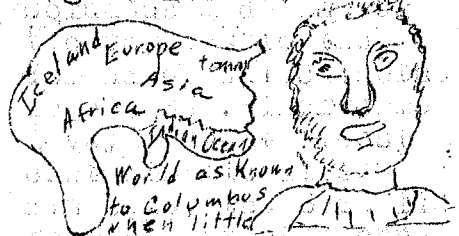 Iceland
Europe
Asia
Africa
Indian Ocean
World as Known
to Columbus
when little